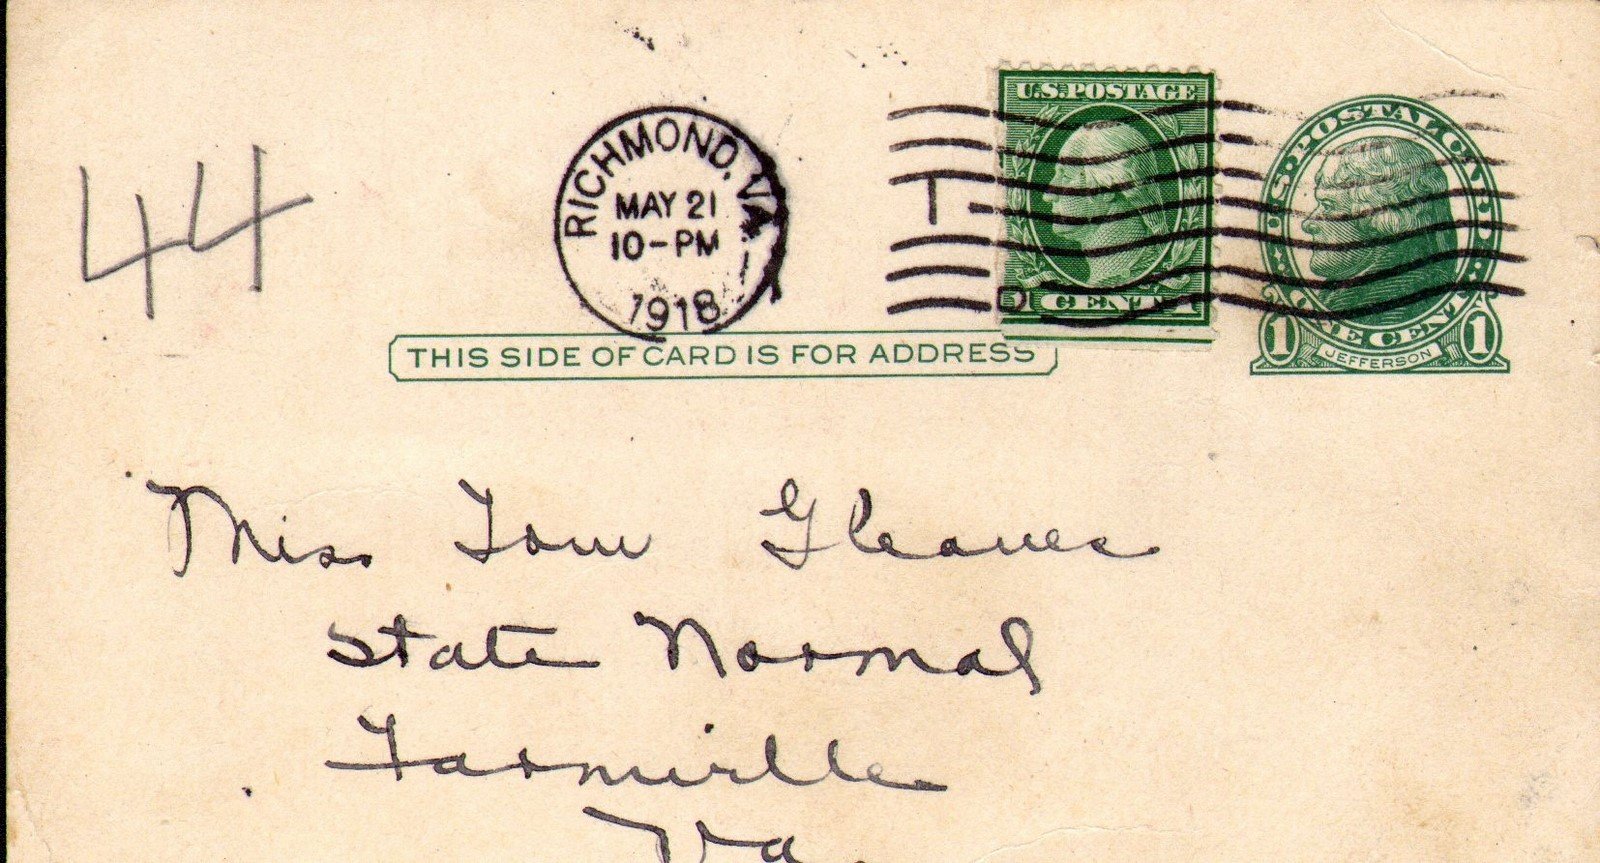 44
RICHMOND, VA.
MAY 21
10-PM
1918
U.S. POSTAGE
1 CENT 1
U.S. POSTAL CARD
ONE CENT
1 JEFFERSON 1
THIS SIDE OF CARD IS FOR ADDRESS
Miss Tom Gleaves
State Normal
Farmville
Va.